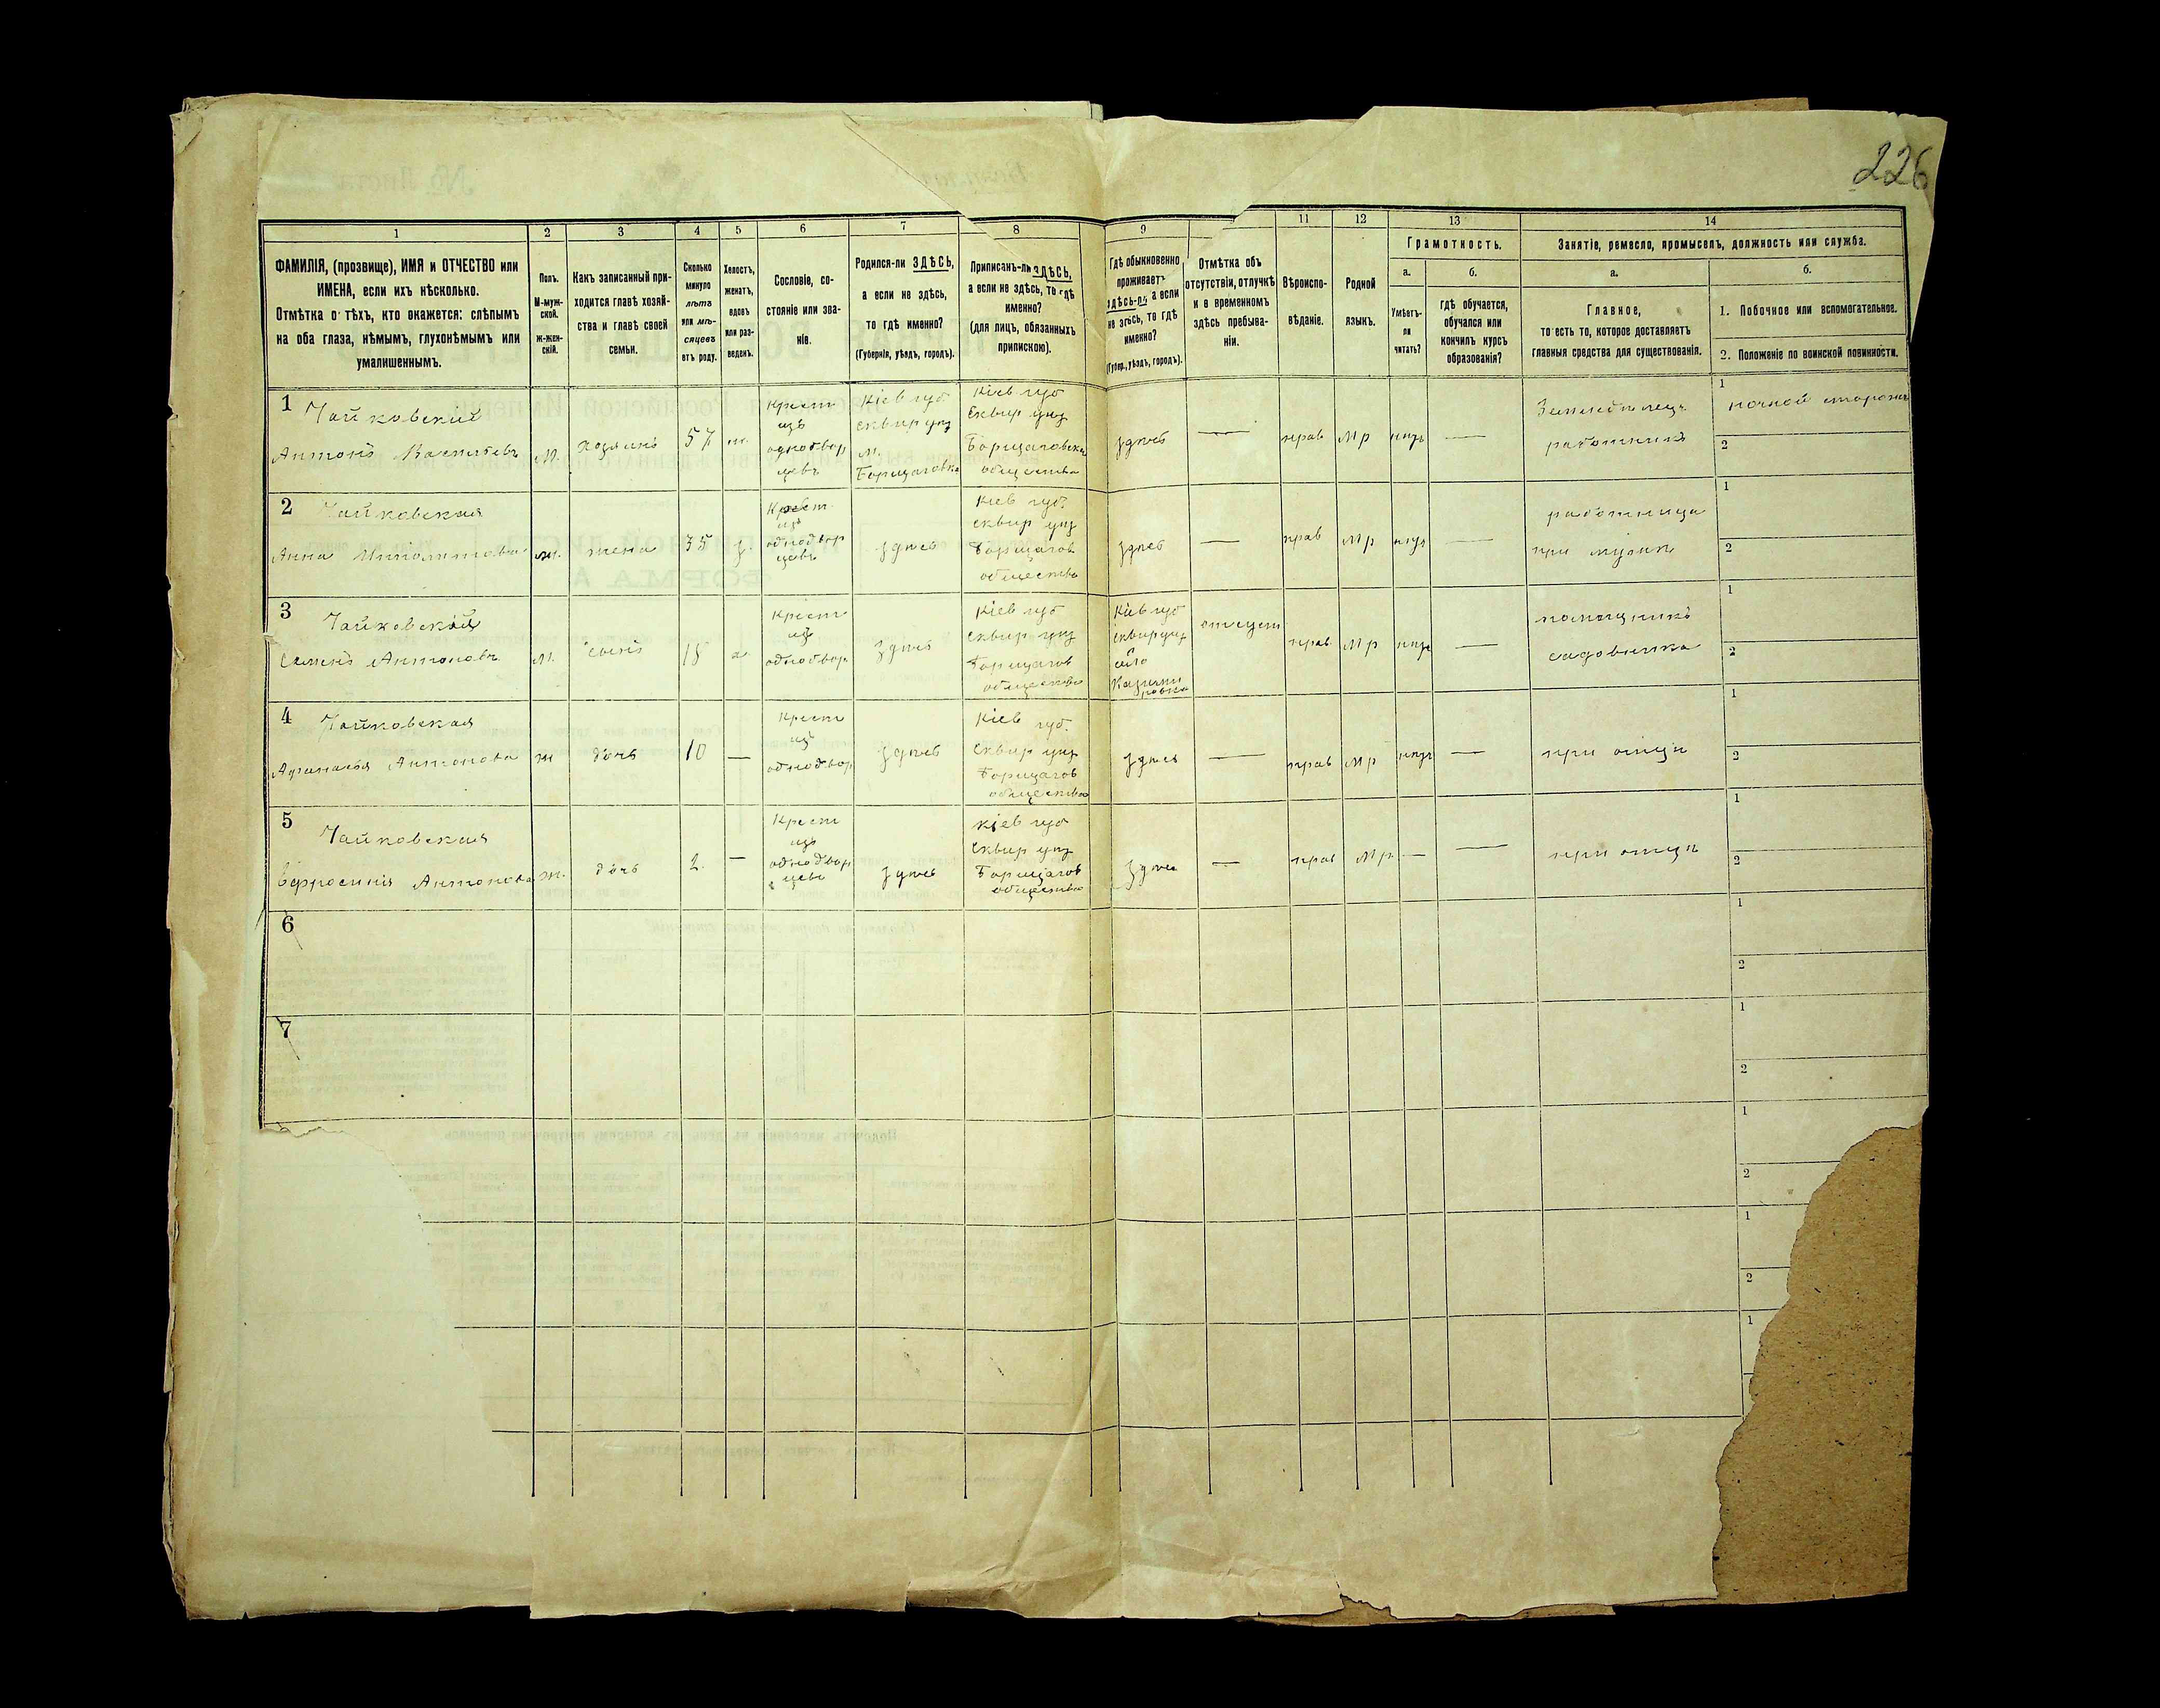 226
1 2 3 4 5 6 7 8 9 11 12 13 14
ФАМИЛІЯ, (прозвище), ИМЯ и ОТЧЕСТВО или
ИМЕНА, если ихъ нѣсколько.
Отмѣтка о тѣхъ, кто окажется: слѣпымъ
на оба глаза, нѣмымъ, глухонѣмымъ или
умалишеннымъ.
Полъ.
М-муж-
ской.
Ж-жен-
скій.
Какъ записанный при-
ходится главѣ хозяй-
ства и главѣ своей
семьи.
Сколько
минуло
лѣтъ
или мѣ-
сяцевъ
отъ роду.
Холостъ,
женатъ,
вдовъ
или раз-
веденъ.
Сословіе, со-
стояніе или зва-
ніе.
Родился-ли ЗДѢСЬ,
а если не здѣсь,
то гдѣ именно?
(Губернія, уѣздъ, городъ).
Приписанъ-ли ЗДѢСЬ,
а если не здѣсь, то гдѣ
именно?
(для лицъ, обязанныхъ
припискою).
Гдѣ обыкновенно
проживаетъ
здѣсь-ли, а если
не здѣсь, то гдѣ
именно?
(Губер., уѣздъ, городъ).
Отмѣтка объ
отсутствіи, отлучкѣ
и о временномъ
здѣсь пребыва-
ніи.
Вѣроиспо-
вѣданіе.
Родной
языкъ.
Грамотность.
а.
Умѣетъ-
ли
читать?
б.
гдѣ обучается,
обучался или
кончилъ курсъ
образованія?
Занятіе, ремесло, промыселъ, должность или служба.
а.
Главное,
то есть то, которое доставляетъ
главныя средства для существованія.
б.
1. Побочное или вспомогательное.
2. Положеніе по воинской повинности.
1
Чайковский
Антонъ Васильевъ
м.
хозяинъ
57
ж.
крест
изъ
однодвор
цевъ
Кіев губ
сквир уѣз
м.
Борщаговка
Кіев губ
Сквир уѣз
Борщаговска
общества
здѣсь
—
прав
Мр
нѣтъ
—
Земледѣлецъ
работникъ
1 ночной сторожъ
2
2
Чайковская
Анна Иполитова
ж.
жена
35
з.
Крест
изъ
однодвор
цевъ
здѣсь
Кіев губ.
сквир уѣз
Борщагов
общества
здѣсь
—
прав
Мр
нѣтъ
—
работница
при мужѣ
1
2
3
Чайковскій
Семенъ Антоновъ
м.
сынъ
18
х
крест
изъ
однодвор
здѣсь
Кіев губ
сквир уѣз
Борщагов
общества
Кіев губ
сквир уѣз
село
Казими
ровка
отсут
прав
Мр
нѣтъ
—
помощникъ
садовника
1
2
4
Чайковская
Афанасія Антонова
ж
дочь
10
—
крест
изъ
однодвор
здѣсь
Кіев губ.
сквир уѣз
Борщагов
общества
здѣсь
—
прав
Мр
нѣтъ
—
при отцѣ
1
2
5
Чайковская
Ефросинія Антонова
ж.
дочь
2.
—
Крест
изъ
однодвор
цевъ
здѣсь
кіев губ
Сквир уѣз
Борщагов
общества
здѣс
—
прав
Мр.
—
—
при отцѣ
1
2
6
1
2
7
1
2
1
2
1
2
1